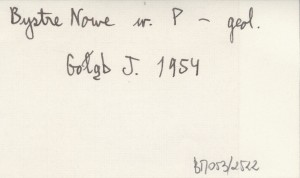 Bystre Nowe w. P - geol.
Gołąb J. 1954
b7053/2522